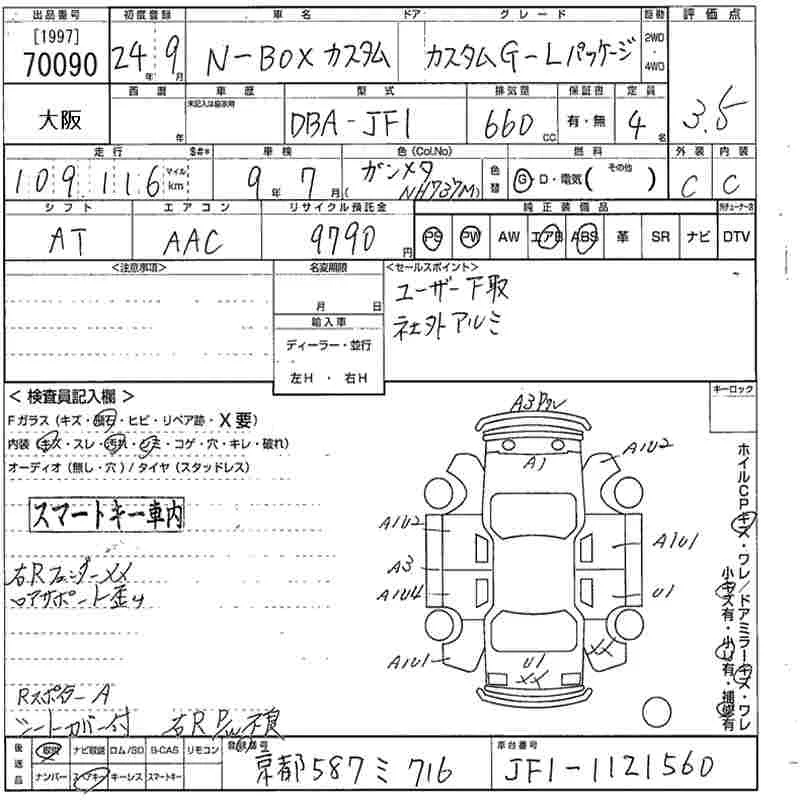 出品番号 初度登録 車名 ドア グレード 駆動 評価点
[1997]
70090 24年 9月 N-BOX カスタム カスタムG-Lパッケージ 2WD・4WD
西暦 車歴 型式 排気量 保証書 定員
未記入は自家用
大阪 年 DBA-JF1 660cc 有・無 4名 3.5
走行 $#* 車検 色(Col.No) 燃料 外装 内装
109,116 マイル km 9年 7月 ガンメタ (NH737M) 色替 G・D・電気( その他 ) C C
シフト エアコン リサイクル預託金 純正装備品
AT AAC 9790円 PS PW AW エアB ABS 革 SR ナビ DTV
<注意事項> 名変期限 <セールスポイント>
ユーザー下取
月 日 社外アルミ
輸入車
ディーラー・並行
左H ・ 右H
キーロック
<検査員記入欄>
Fガラス(キズ・飛石・ヒビ・リペア跡・X要)
内装(キズ・スレ・汚れ・シミ・コゲ・穴・キレ・破れ)
オーディオ(無し・穴)/タイヤ(スタッドレス)
スマートキー車内
右Rフェンダーxx
ロアサポート歪み
RスポイラーA
シートカバー付 右R P/W不良
A1
A1U2
A1U2
A1U1
A3
A1U4
U1
A1U1
U1
XX
XX
ホイルCPキズ・ワレ/ドアミラーキズ・ワレ
小キズ有・小U有・補修有
後送品 取説 ナビ取説 ロム/SD B-CAS リモコン 登録番号 車台番号
ナンバー スペアキー キーレス スマートキー 京都587ミ716 JF1-1121560